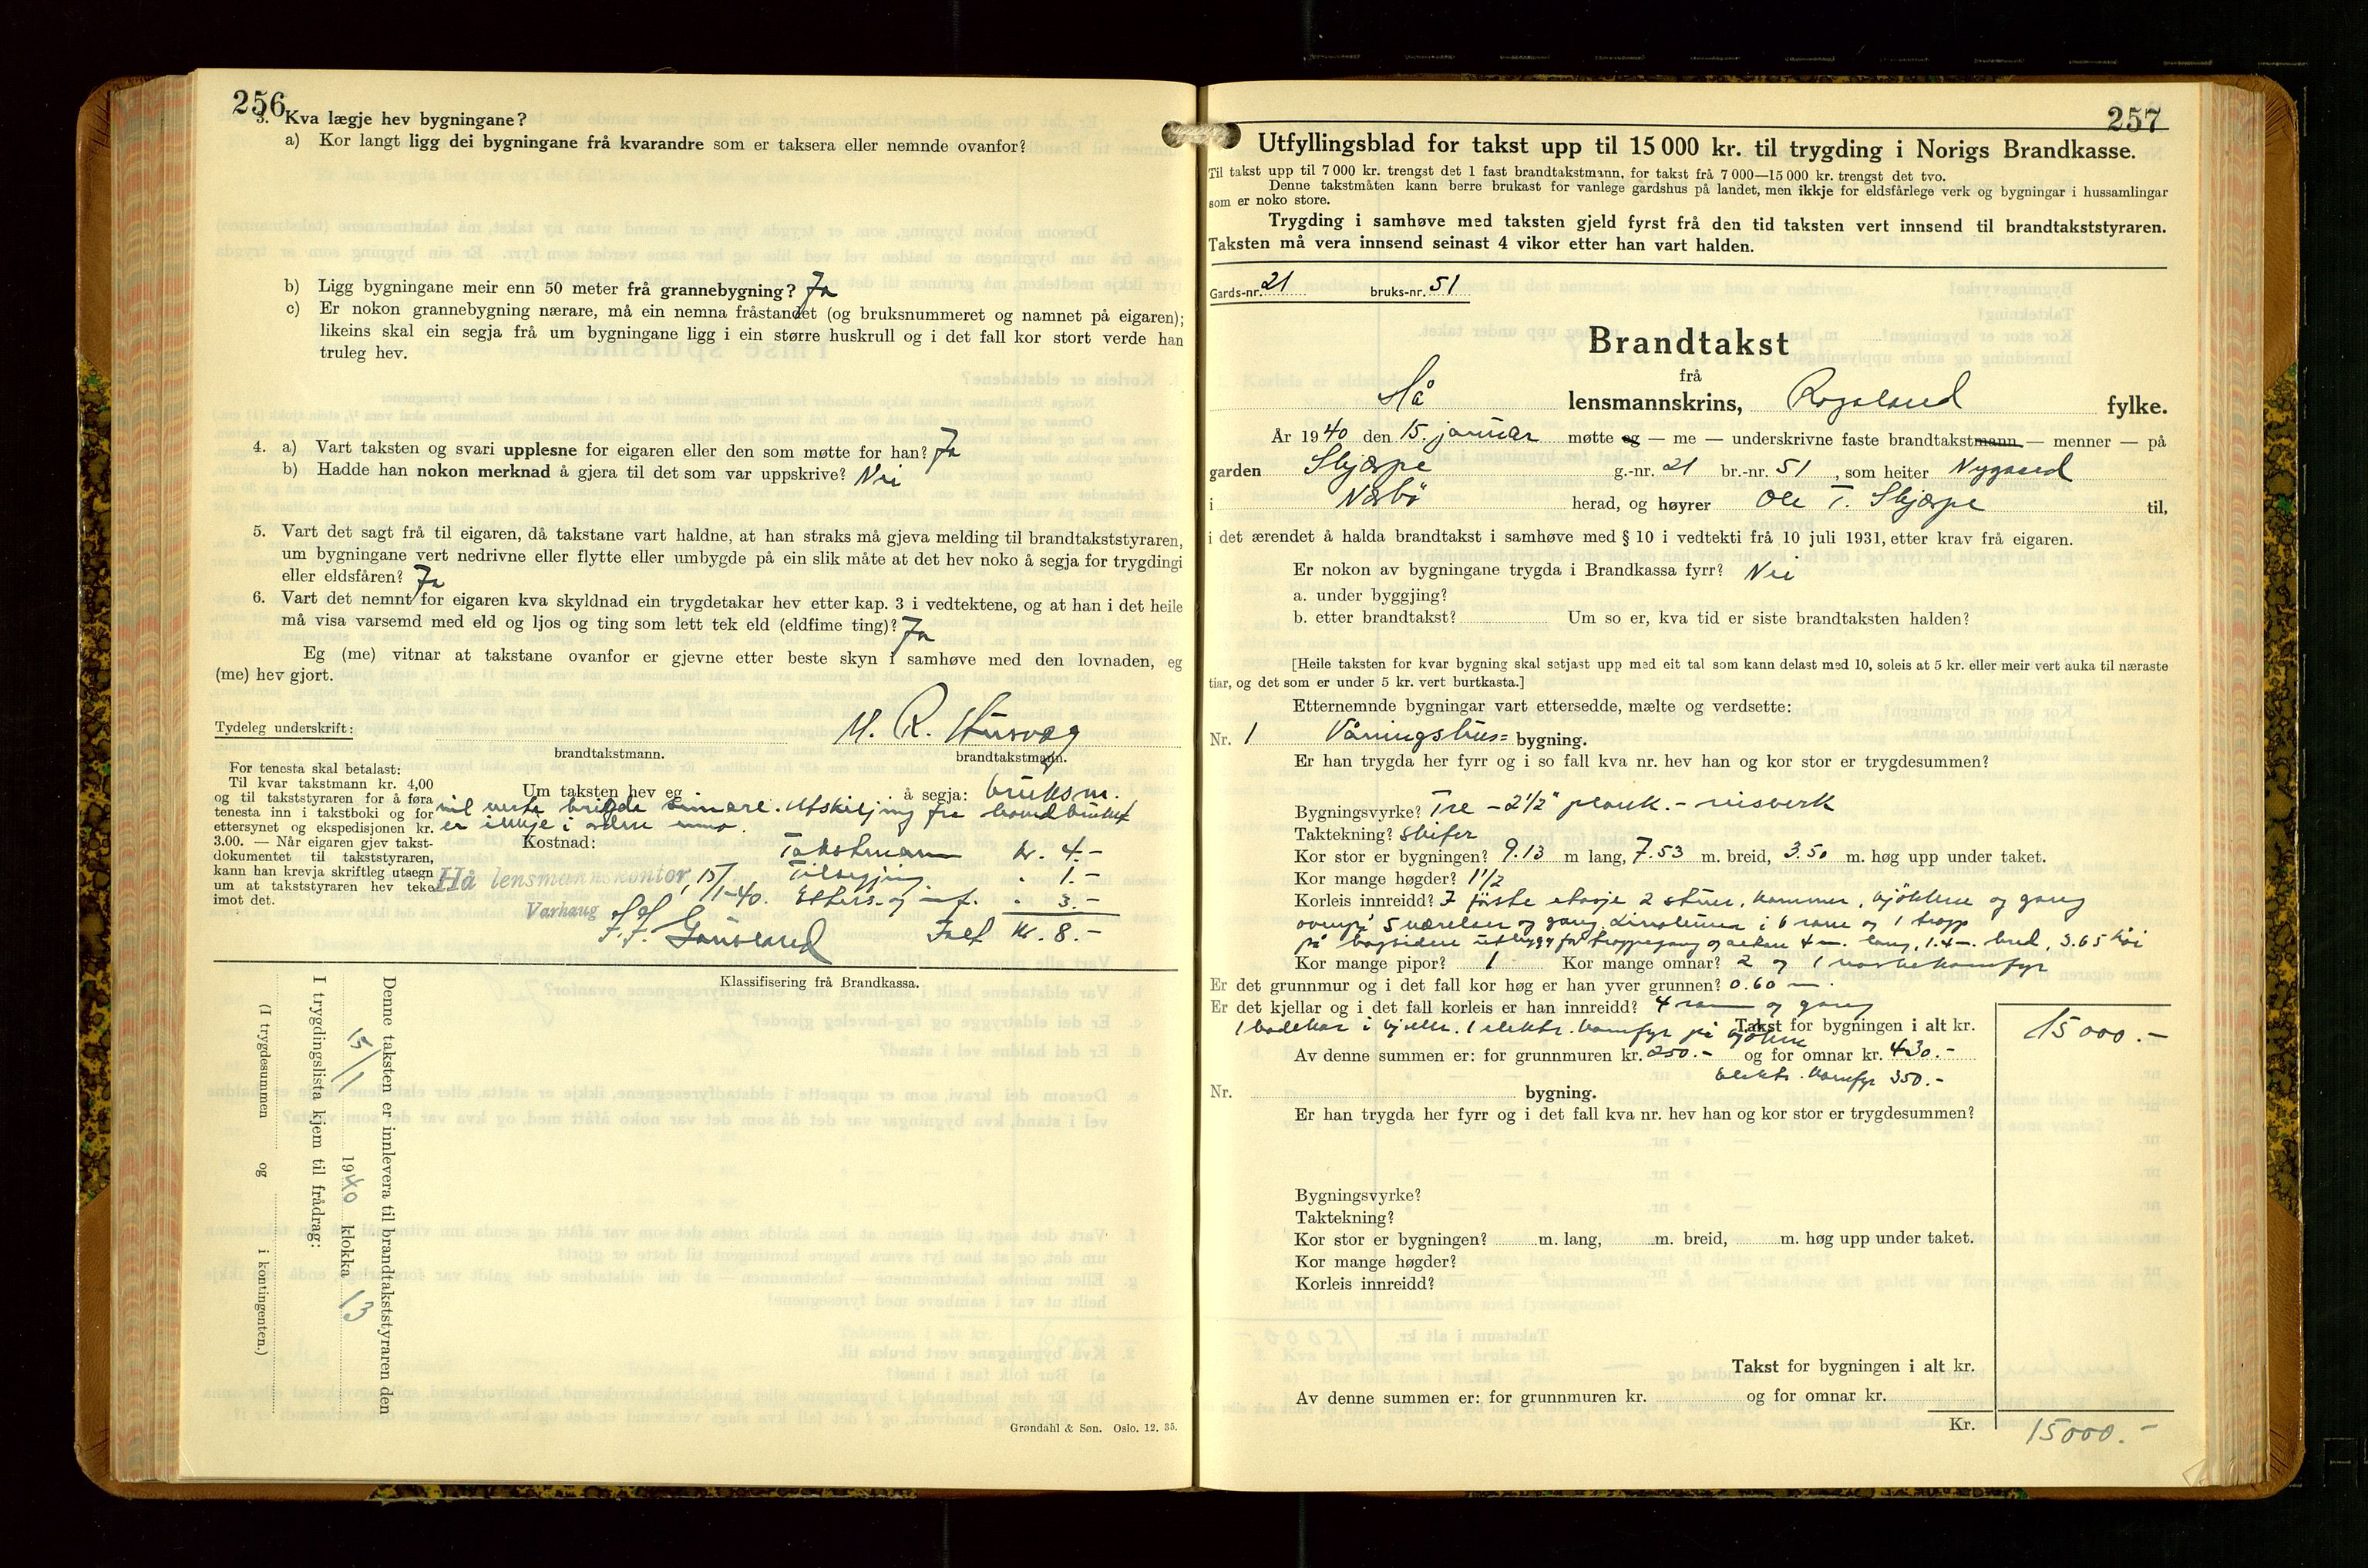 256
3. Kva lægje hev bygningane?
a) Kor langt ligg dei bygningane frå kvarandre som er taksera eller nemnde ovanfor?
b) Ligg bygningane meir enn 50 meter frå grannebygning? Ja
c) Er nokon grannebygning nærare, må ein nemna fråstandet (og bruksnummeret og namnet på eigaren);
likeins skal ein segja frå um bygningane ligg i ein større huskrull og i det fall kor stort verde han
truleg hev.
4. a) Vart taksten og svari upplesne for eigaren eller den som møtte for han? Ja
b) Hadde han nokon merknad å gjera til det som var uppskrive? Nei
5. Vart det sagt frå til eigaren, då takstane vart haldne, at han straks må gjeva melding til brandtakststyraren,
um bygningane vert nedrivne eller flytte eller umbygde på ein slik måte at det hev noko å segja for trygdingi
eller eldsfåren? Ja
6. Vart det nemnt for eigaren kva skyldnad ein trygdetakar hev etter kap. 3 i vedtektene, og at han i det heile
må visa varsemd med eld og ljos og ting som lett tek eld (eldfime ting)? Ja
Eg (me) vitnar at takstane ovanfor er gjevne etter beste skyn i samhøve med den lovnaden, eg
(me) hev gjort.
Tydeleg underskrift:
M. R. Husvæg
brandtakstmann.
brandtakstmann.
For tenesta skal betalast:
Til kvar takstmann kr. 4,00
og til takststyraren for å føra
tenesta inn i takstboki og for
ettersynet og ekspedisjonen kr.
3.00. — Når eigaren gjev takst-
dokumentet til takststyraren,
kann han krevja skriftleg utsegn
um at takststyraren hev teke
imot det.
Um taksten hev eg å segja: bruksnr.
Utskiljing fra hovedbruket
er ikkje i orden
Kostnad:
Takstmann kr. 4.-
Tilsegjing " 1.-
Etters. og " 3.-
Ialt kr. 8.-
Hå lensmannskontor, 15/1-40.
Varhaug
Klassifisering frå Brandkassa.
Denne taksten er innlevera til brandtakststyraren den
15/1 1940 klokka 13
I trygdingslista kjem til frådrag:
(I trygdesummen og i kontingenten.)
Grøndahl & Søn. Oslo. 12. 35.
257
Utfyllingsblad for takst upp til 15 000 kr. til trygding i Norigs Brandkasse.
Til takst upp til 7 000 kr. trengst det 1 fast brandtakstmann, for takst frå 7 000—15 000 kr. trengst det tvo.
Denne takstmåten kann berre brukast for vanlege gardshus på landet, men ikkje for eldsfårlege verk og bygningar i hussamlingar
som er noko store.
Trygding i samhøve med taksten gjeld fyrst frå den tid taksten vert innsend til brandtakststyraren.
Taksten må vera innsend seinast 4 vikor etter han vart halden.
Gards-nr. 21 bruks-nr. 51
Brandtakst
frå
Hå lensmannskrins, Rogaland fylke.
År 1940 den 15. januar møtte eg — me — underskrivne faste brandtakstmann — menner — på
garden Skjærpe g.-nr. 21 br.-nr. 51, som heiter Nygaard
i Nærbö herad, og høyrer Ole T. Skjærpe til,
i det ærendet å halda brandtakst i samhøve med § 10 i vedtekti frå 10 juli 1931, etter krav frå eigaren.
Er nokon av bygningane trygda i Brandkassa fyrr? Nei
a. under byggjing?
b. etter brandtakst? Um so er, kva tid er siste brandtaksten halden?
[Heile taksten for kvar bygning skal setjast upp med eit tal som kann delast med 10, soleis at 5 kr. eller meir vert auka til næraste
tiar, og det som er under 5 kr. vert burtkasta.]
Etternemnde bygningar vart ettersedde, mælte og verdsette:
Nr. 1 Våningshus= bygning.
Er han trygda her fyrr og i so fall kva nr. hev han og kor stor er trygdesummen?
Bygningsvyrke? Tre - 2½" plank. - reisverk
Taktekning? Skifer
Kor stor er bygningen? 9.13 m lang, 7.53 m. breid, 3.50 m. høg upp under taket.
Kor mange høgder? 1½
Korleis innreidd? I förste etasje 2 stuer, kammer, kjökken og gang
ovenpå 5 værelser og gang. Linoleum i 6 rom og 1 trapp
på baksiden utbygg for trappegang og altan 4 m. lang, 1.4 m. bred, 3.65 höi
Kor mange pipor? 1 Kor mange omnar? 2 og 1 vaskekomfyr
Er det grunnmur og i det fall kor høg er han yver grunnen? 0.60 m.
Er det kjellar og i det fall korleis er han innreidd? 4 rom og gang
1 badekar i kjeller. 1 elektr. komfyr på kjökken
Takst for bygningen i alt kr. 15000.-
Av denne summen er: for grunnmuren kr. 250.- og for omnar kr. 430.-
Elektr. komfyr 350.-
Nr. bygning.
Er han trygda her fyrr og i det fall kva nr. hev han og kor stor er trygdesummen?
Bygningsvyrke?
Taktekning?
Kor stor er bygningen? m. lang, m. breid, m. høg upp under taket.
Kor mange høgder?
Korleis innreidd?
Takst for bygningen i alt kr.
Av denne summen er: for grunnmuren kr. og for omnar kr.
Kr. 15000.-